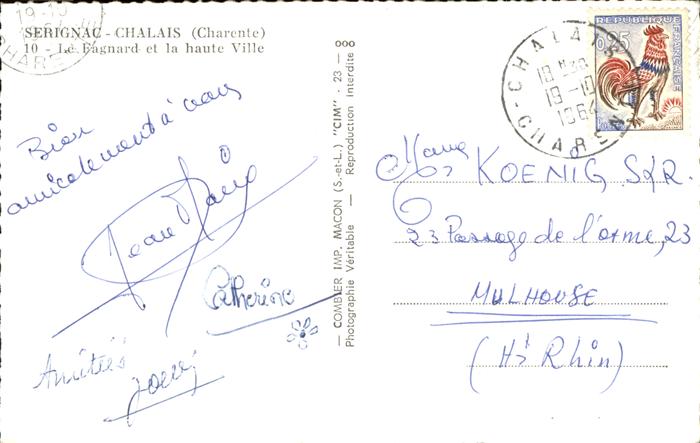 SERIGNAC - CHALAIS (Charente)
10 - Le Fagnard et la haute Ville
19-10
Bien
amicalement à vous
Jean
Catherine
Amitiés
— COMBIER IMP. MACON (S.-et-L.) "CIM" - 23 — ooo
Photographie Véritable — Reproduction Interdite
CHALAIS
18 H
19-10
1964
REPUBLIQUE FRANÇAISE
0,25
KOENIG
23 Passage de l'orme, 23
MULHOUSE
(Ht Rhin)